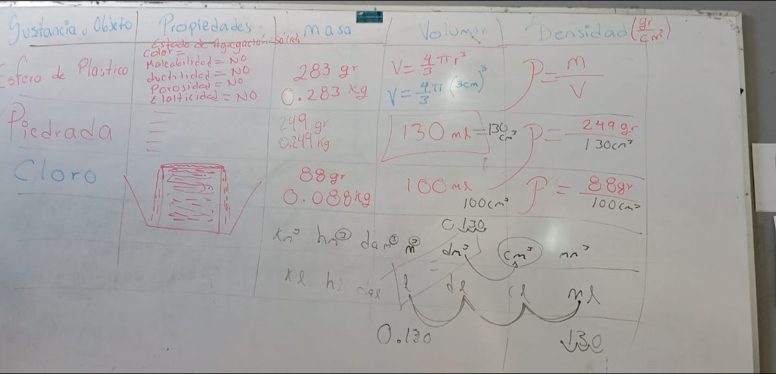 Sustancia u Objeto Propiedades masa Volumen Densidad (gr/cm³)
Esfera de Plastico
Estado de agregación = solido
Color =
Maleabilidad = NO
ductilidad = NO
Porosidad = NO
Elasticidad = NO
283 gr
0.283 kg
V = 4/3 π r³
V = 4/3 π (3cm)³
ρ = m/V
Piedrada
249 gr
0.249 kg
130 ml = 130 cm³
ρ = 249 gr/130 cm³
Cloro
88 gr
0.088 kg
100 ml
100 cm³
ρ = 88 gr/100 cm³
0.130
km³ hm³ dam³ m³ dm³ cm³ mm³
kl hl dal l dl cl ml
0.130 130